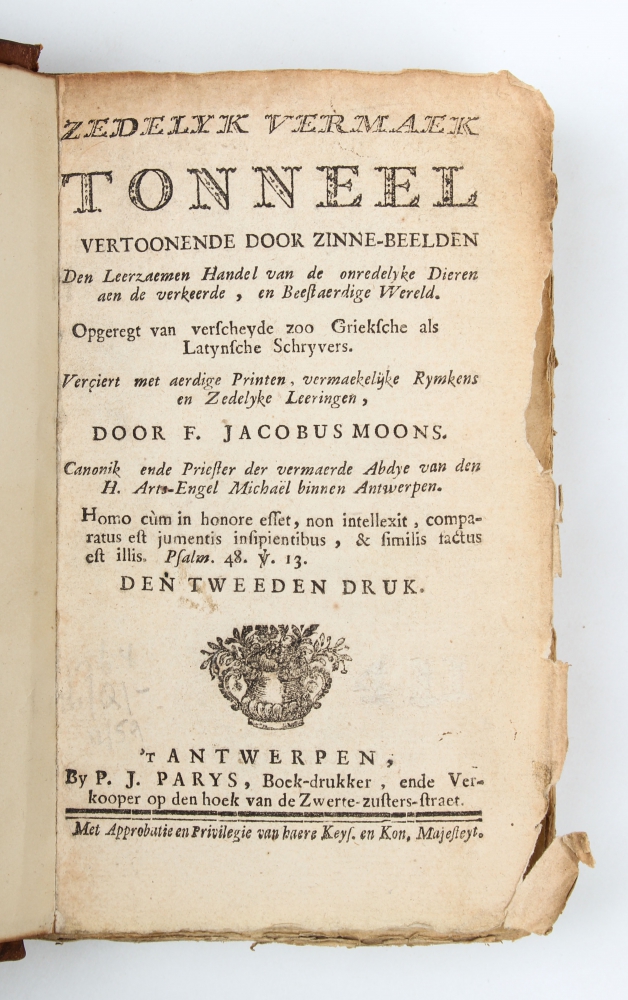 ZEDELYK VERMAEK
TONNEEL
VERTOONENDE DOOR ZINNE-BEELDEN
Den Leerzaemen Handel van de onredelyke Dieren
aen de verkeerde, en Beeſtaerdige Wereld.
Opgeregt van verſcheyde zoo Griekſche als
Latynſche Schryvers.
Verçiert met aerdige Printen, vermaekelijke Rymkens
en Zedelyke Leeringen,
DOOR F. JACOBUS MOONS.
Canonik ende Prieſter der vermaerde Abdye van den
H. Arts-Engel Michaël binnen Antwerpen.
Homo cùm in honore eſſet, non intellexit, compa-
ratus eſt jumentis inſipientibus, & ſimilis factus
eſt illis. Pſalm. 48. ℣. 13.
DEN TWEEDEN DRUK.
'T ANTWERPEN,
By P. J. PARYS, Boek-drukker, ende Ver-
kooper op den hoek van de Zwerte-zuſters-ſtraet.
Met Approbatie en Privilegie van haere Keyſ. en Kon. Majeſteyt.